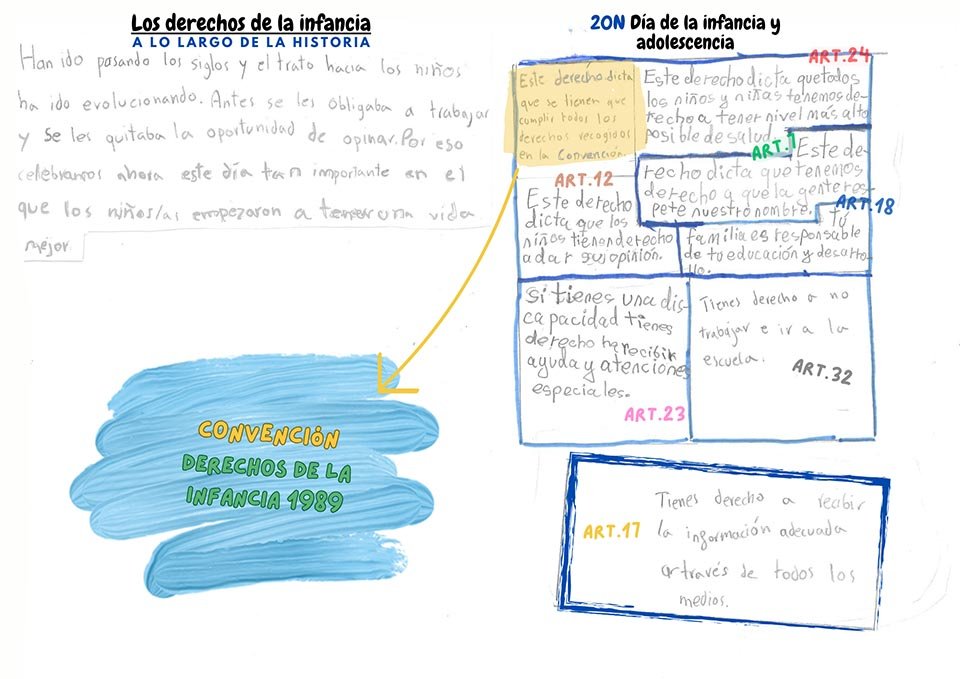 Los derechos de la infancia
A LO LARGO DE LA HISTORIA
Han ido pasando los siglos y el trato hacia los niños
ha ido evolucionando. Antes se les obligaba a trabajar
y se les quitaba la oportunidad de opinar. Por eso
celebramos ahora este día tan importante en el
que los niños/as empezaron a tener una vida
mejor.
CONVENCIÓN
DERECHOS DE LA
INFANCIA 1989
20N Día de la infancia y
adolescencia
Este derecho dicta
que se tienen que
cumplir todos los
derechos recogidos
en la Convención
ART.24
Este derecho dicta que todos
los niños y niñas tenemos de-
recho a tener nivel más alto
posible de salud.
ART.7
Este de-
recho dicta que tenemos
derecho a que la gente res-
pete nuestro nombre.
ART.12
Este derecho
dicta que los
niños tienen derecho
a dar su opinión.
ART.18
tú
familia es responsable
de tu educación y desarro-
llo.
si tienes una dis-
capacidad tienes
derecho ha recibir
ayuda y atenciones
especiales.
ART.23
Tienes derecho a no
trabajar e ir a la
escuela.
ART.32
ART.17
Tienes derecho a recibir
la información adecuada
a través de todos los
medios.